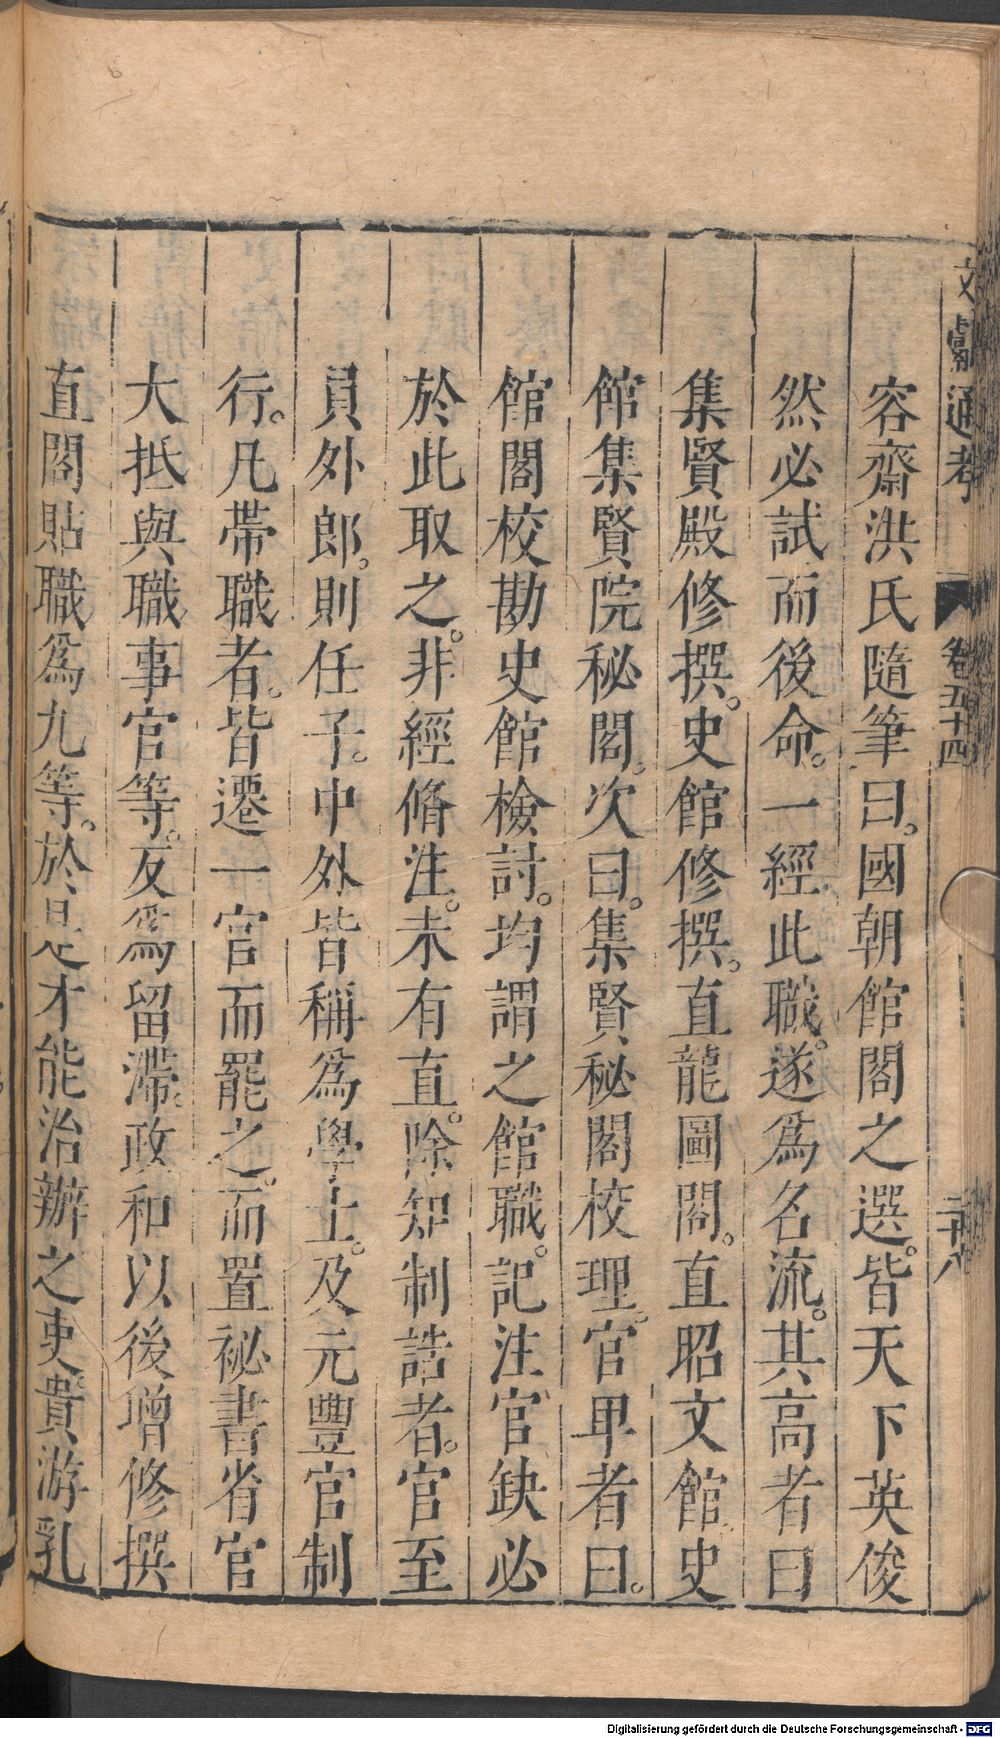 文獻通考 卷五十四 二十八
容齋洪氏隨筆曰。國朝館閣之選。皆天下英俊
然必試而後命。一經此職。遂爲名流。其高者曰
集賢殿修撰。史館修撰。直龍圖閣。直昭文館史
館集賢院秘閣。次曰。集賢秘閣校理。官卑者曰。
館閣校勘史館檢討。均謂之館職。記注官缺必
於此取之。非經脩注。未有直除知制誥者。官至
員外郎。則任子。中外皆稱爲學士。及元豐官制
行。凡帶職者。皆遷一官而罷之。而置祕書省官
大抵與職事官等。反爲留滯。政和以後增修撰
直閣貼職爲九等。於是才能治辦之吏貴游乳
Digitalisierung gefördert durch die Deutsche Forschungsgemeinschaft - DFG